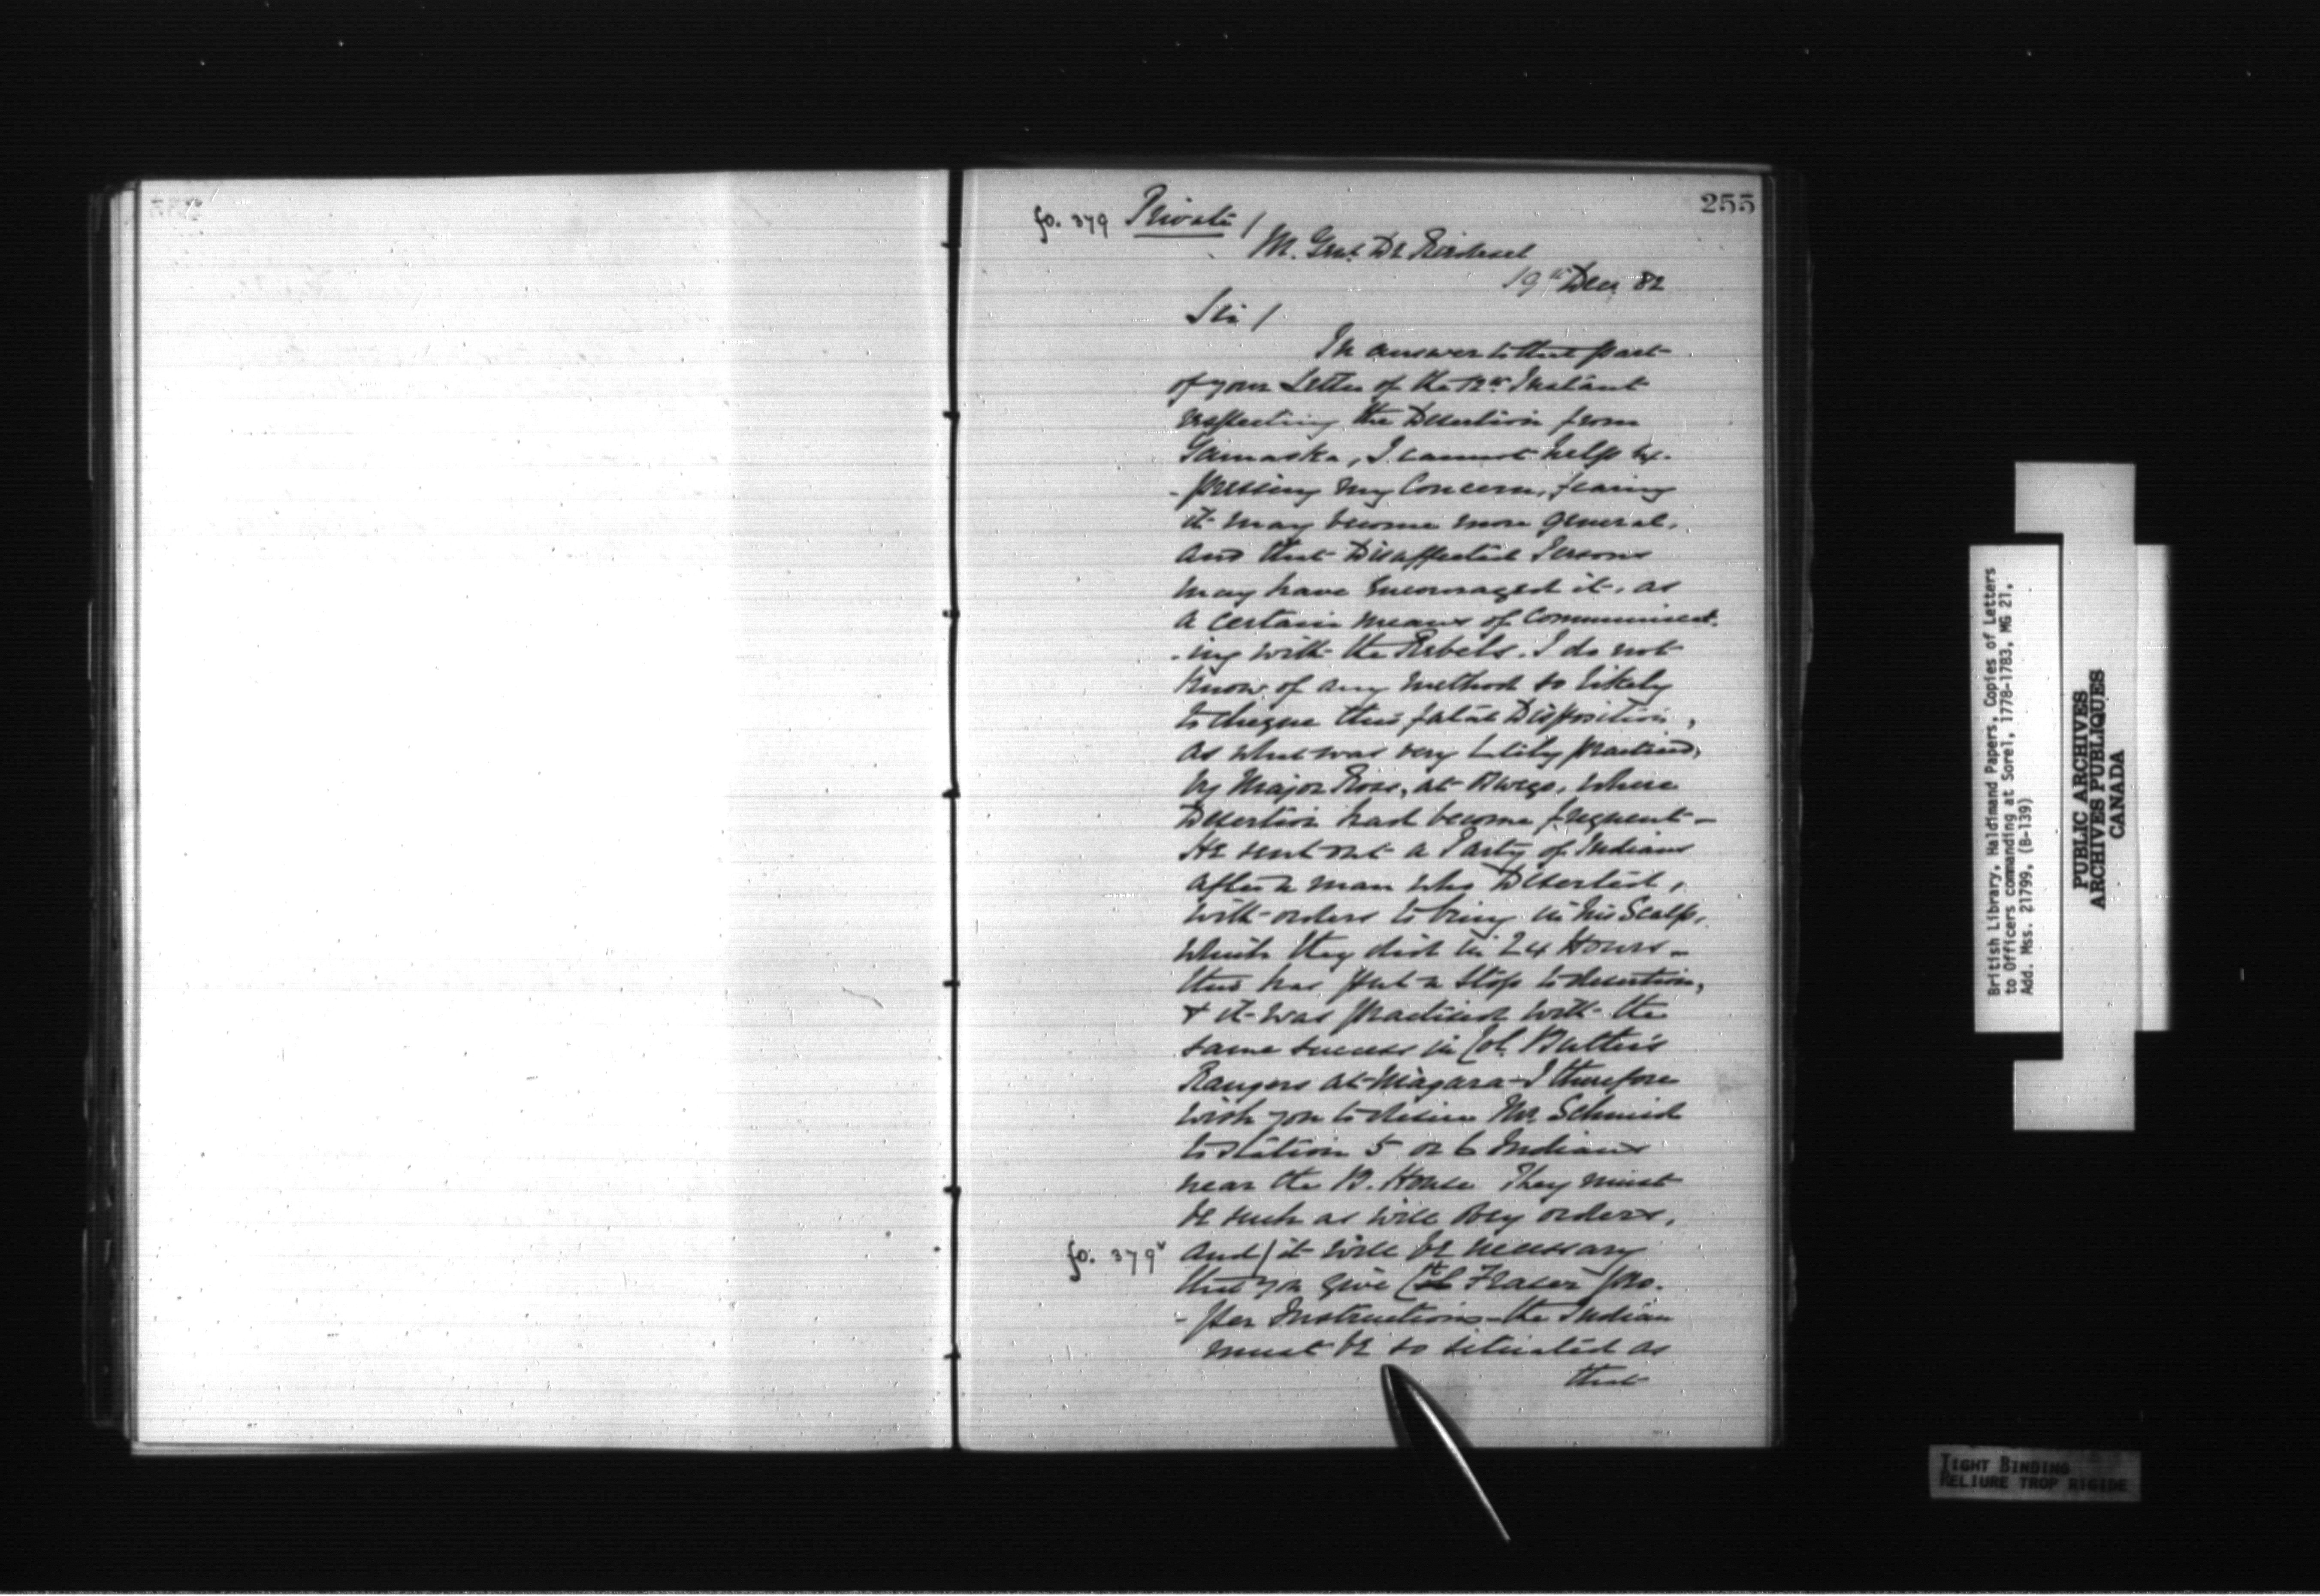 255
fo. 379 Private /
M. Genl. De Riedesel
19th Decr. 82
Sir /
In answer to that part
of your Letter of the 12th Instant
respecting the Desertion from
Yamaska, I cannot help ex-
-pressing my Concern, fearing
it may become more general,
and that Disaffected Persons
may have Encouraged it, as
a certain means of Communicat-
-ing with the Rebels. I do not
know of any method so likely
to cheque this fatal Disposition,
as what was very lately practised,
by Major Ross, at Oswego, where
Desertion had become frequent -
He sent out a Party of Indians
after a man who Deserted,
with orders to bring in his Scalp,
which they did in 24 Hours -
this has put a stop to desertion,
& it was practised with the
same success in Col. Butler's
Rangers at Niagara - I therefore
wish you to desire Mr. Schmid
to station 5 or 6 Indians
near the B. House They must
be such as will obey orders,
fo. 379v and / it will be necessary
that you give Fraser pro-
-per Instructions - the Indian
must be so situated as
that
British Library, Haldimand Papers, Copies of Letters
to Officers commanding at Sorel, 1778-1783, MG 21,
Add. Mss. 21799, (B-139)
PUBLIC ARCHIVES
ARCHIVES PUBLIQUES
CANADA
TIGHT BINDING
RELIURE TROP RIGIDE